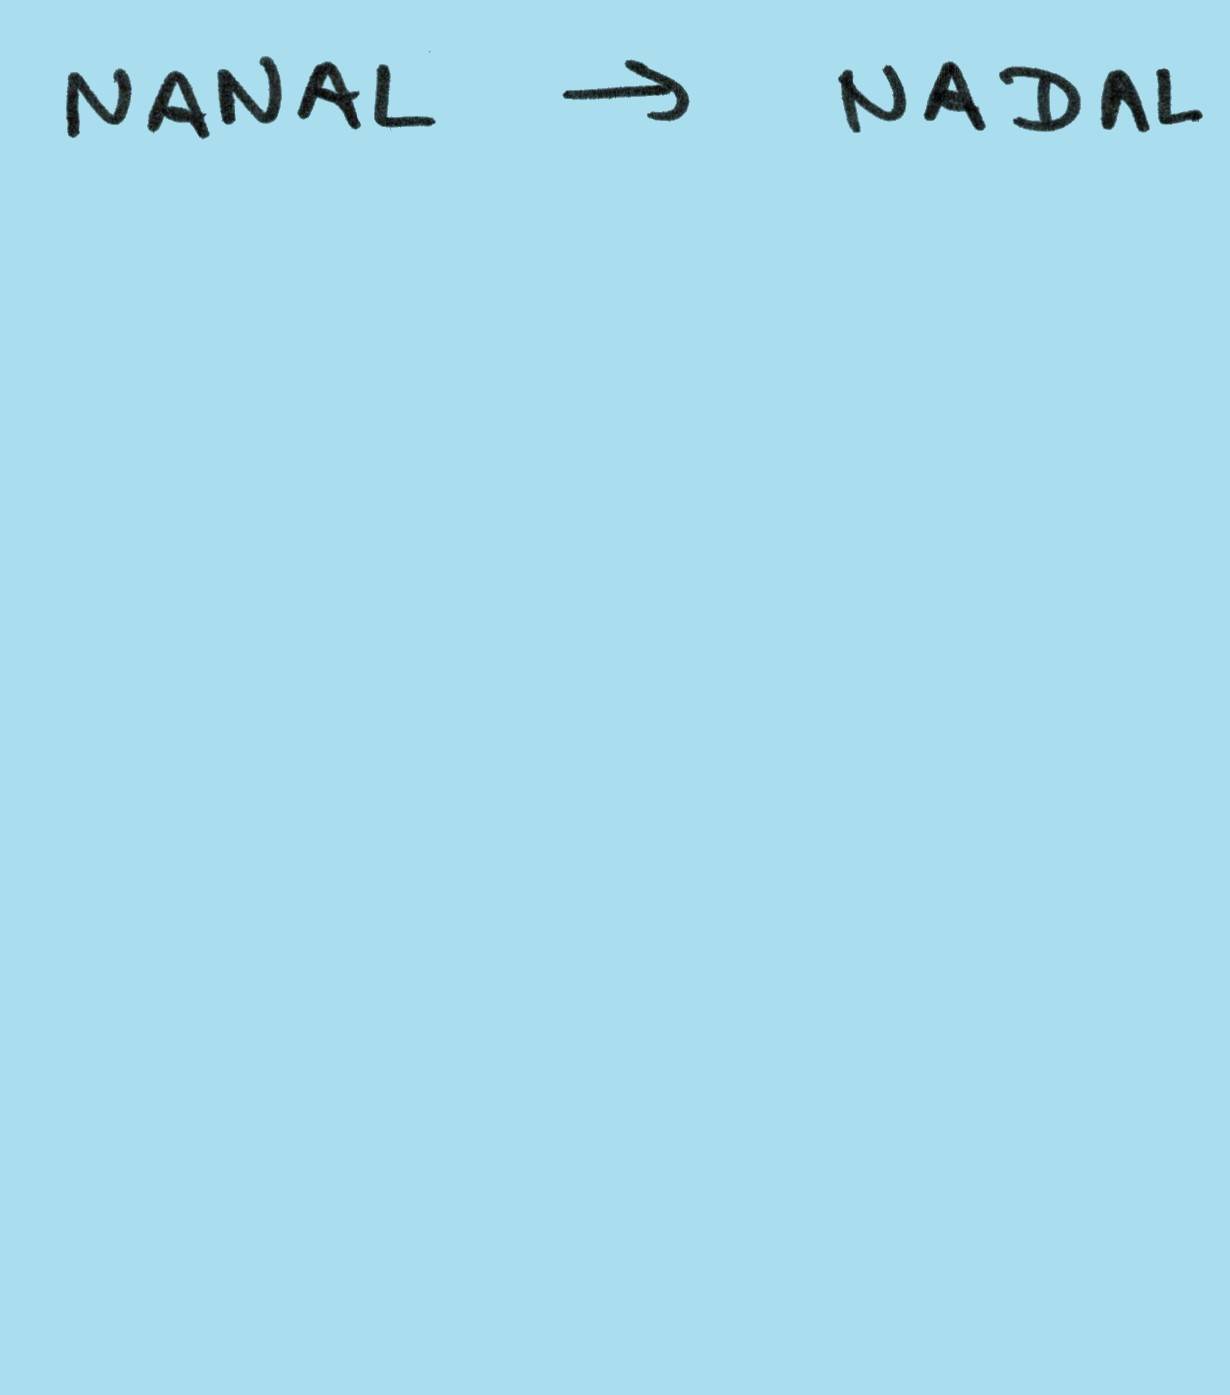 NANAL → NADAL